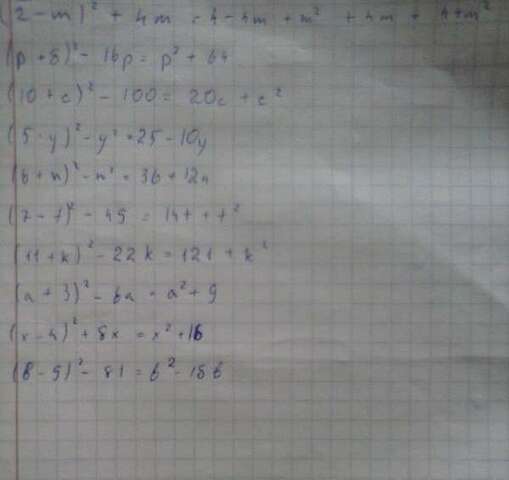 (2-m)² + 4m = 4-4m + m² + 4m = 4+m²
(p+8)² - 16p = p² + 64
(10+c)² - 100 = 20c + c²
(5-y)² - y² = 25 - 10y
(6+n)² - n² = 36 + 12n
(7-t)² - 49 = 14t + t²
(11+k)² - 22k = 121 + k²
(a+3)² - 6a = a² + 9
(x-4)² + 8x = x² + 16
(b-9)² - 81 = b² - 18b